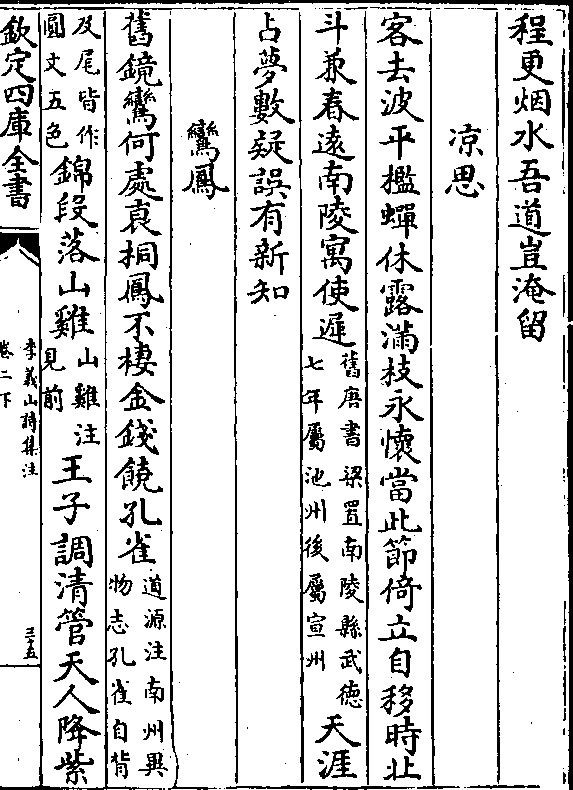 程更烟水吾道豈淹留
凉思
客去波平檻蟬休露滿枝永懷當此節倚立自移時北
斗兼春遠南陵寓使遲舊唐書梁置南陵縣武德七年屬池州後屬宣州天涯
占夢數疑誤有新知
鸞鳳
舊鏡鸞何處衰桐鳳不棲金錢饒孔雀道源注南州異物志孔雀自背
及尾皆作圓文五色錦段落山雞山雞注見前王子調清管天人降紫
欽定四庫全書
李義山詩集注
卷二下
三五